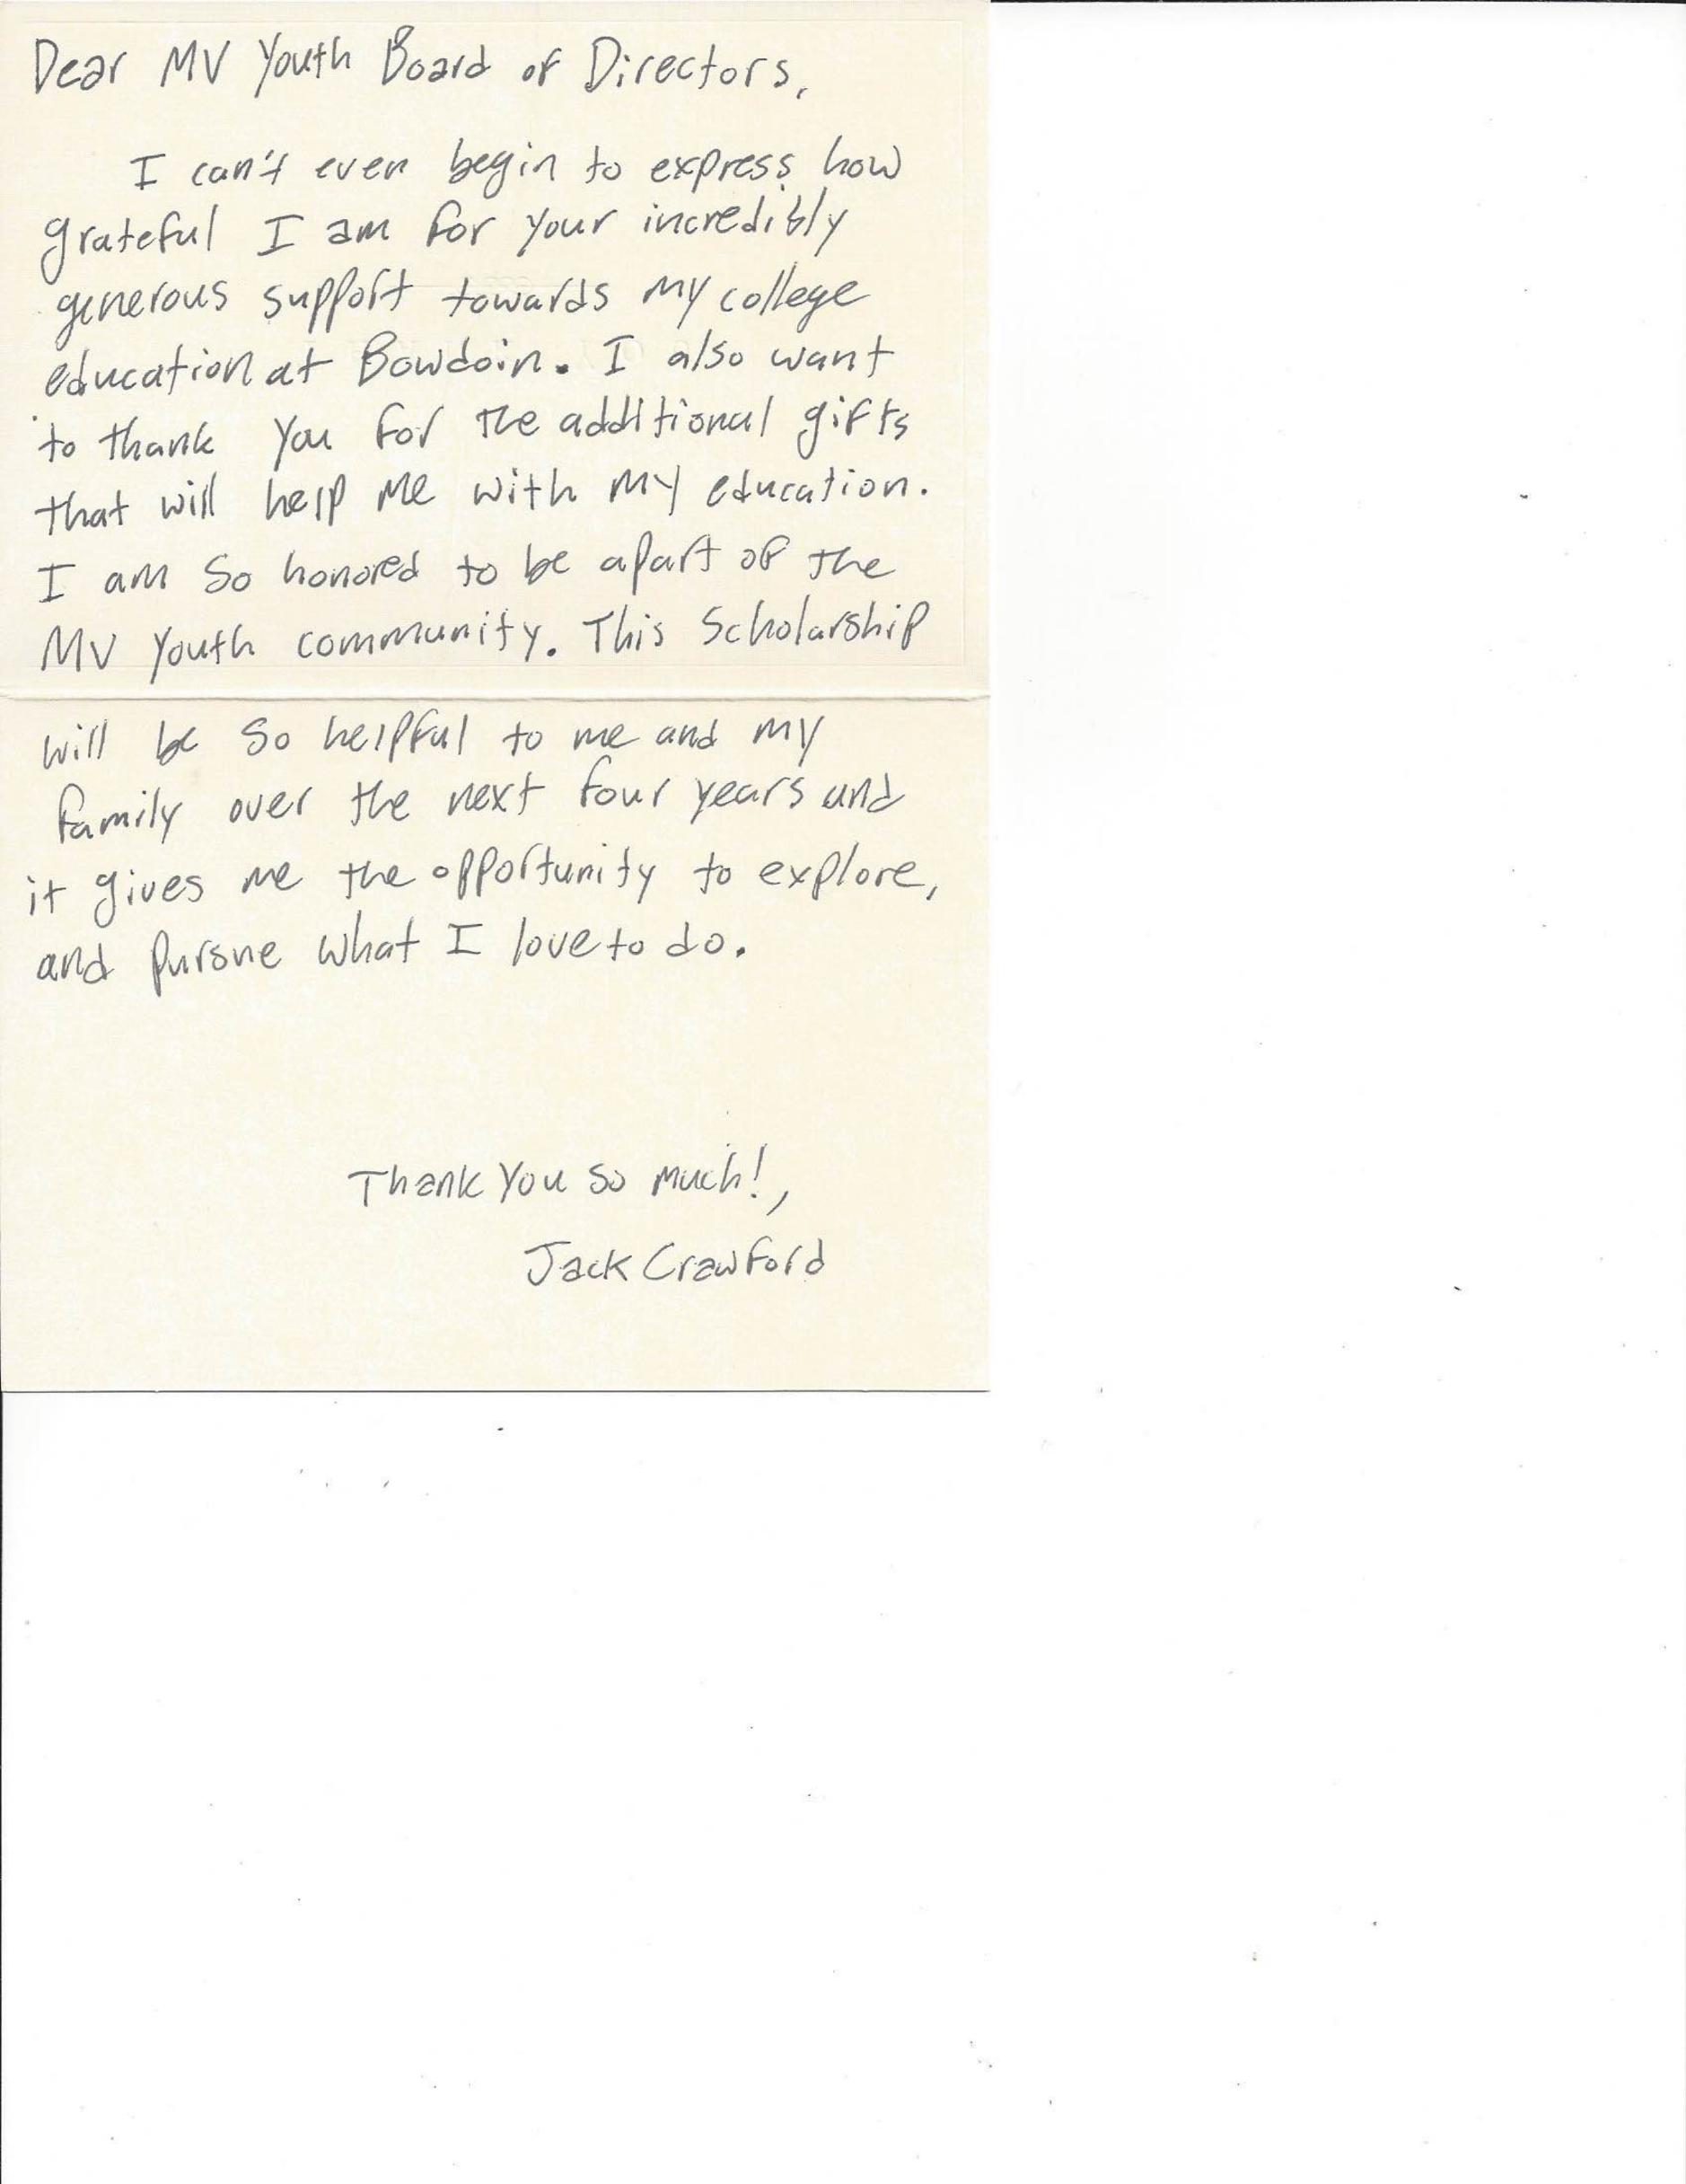 Dear MV Youth Board of Directors,
I can't even begin to express how
grateful I am for your incredibly
generous support towards my college
education at Bowdoin. I also want
to thank you for the additional gifts
that will help me with my education.
I am so honored to be apart of the
MV Youth community. This Scholarship
will be so helpful to me and my
family over the next four years and
it gives me the opportunity to explore,
and pursue what I love to do.
Thank you so much!,
Jack Crawford